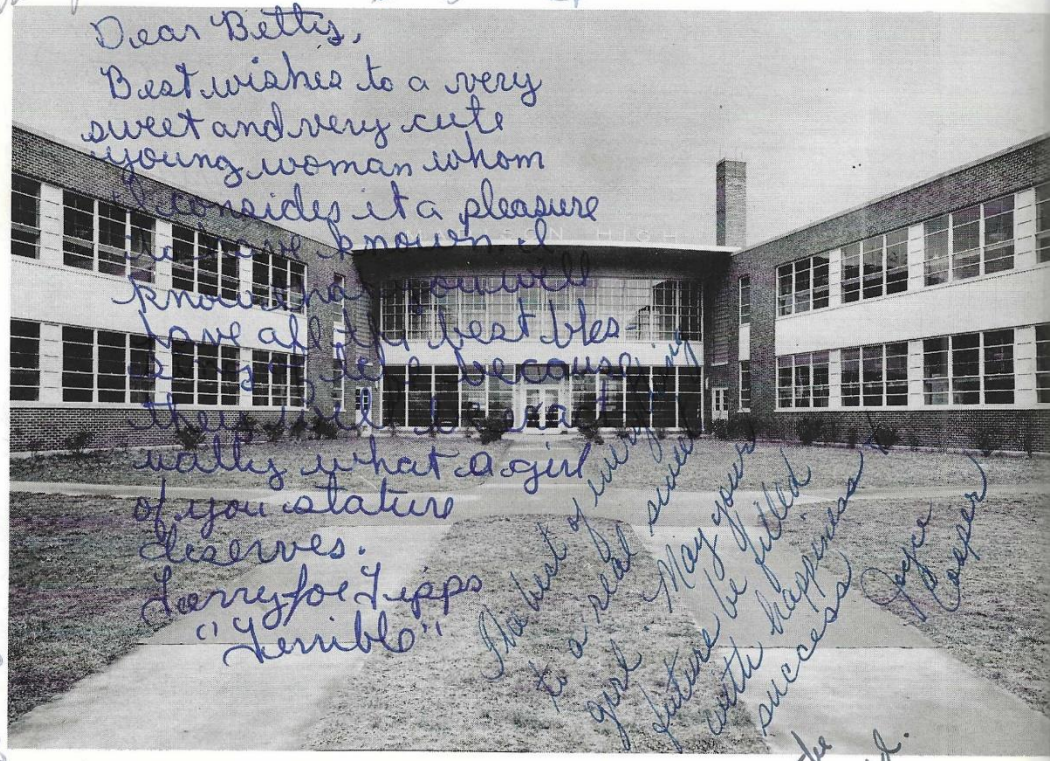 Dear Bettis,
Best wishes to a very
sweet and very cute
young woman whom
I consides it a pleasure
to have known I
know that you will
have all the best bles-
sings of life because
they will be exact
ually what a girl
of you stature
deserves.
Terry Joe Tipps
"Terrible"
SON HIGH
The best of everything
to a real sweet
girl. May your
future be filled
with happiness &
success
Joyce
Cosper
be